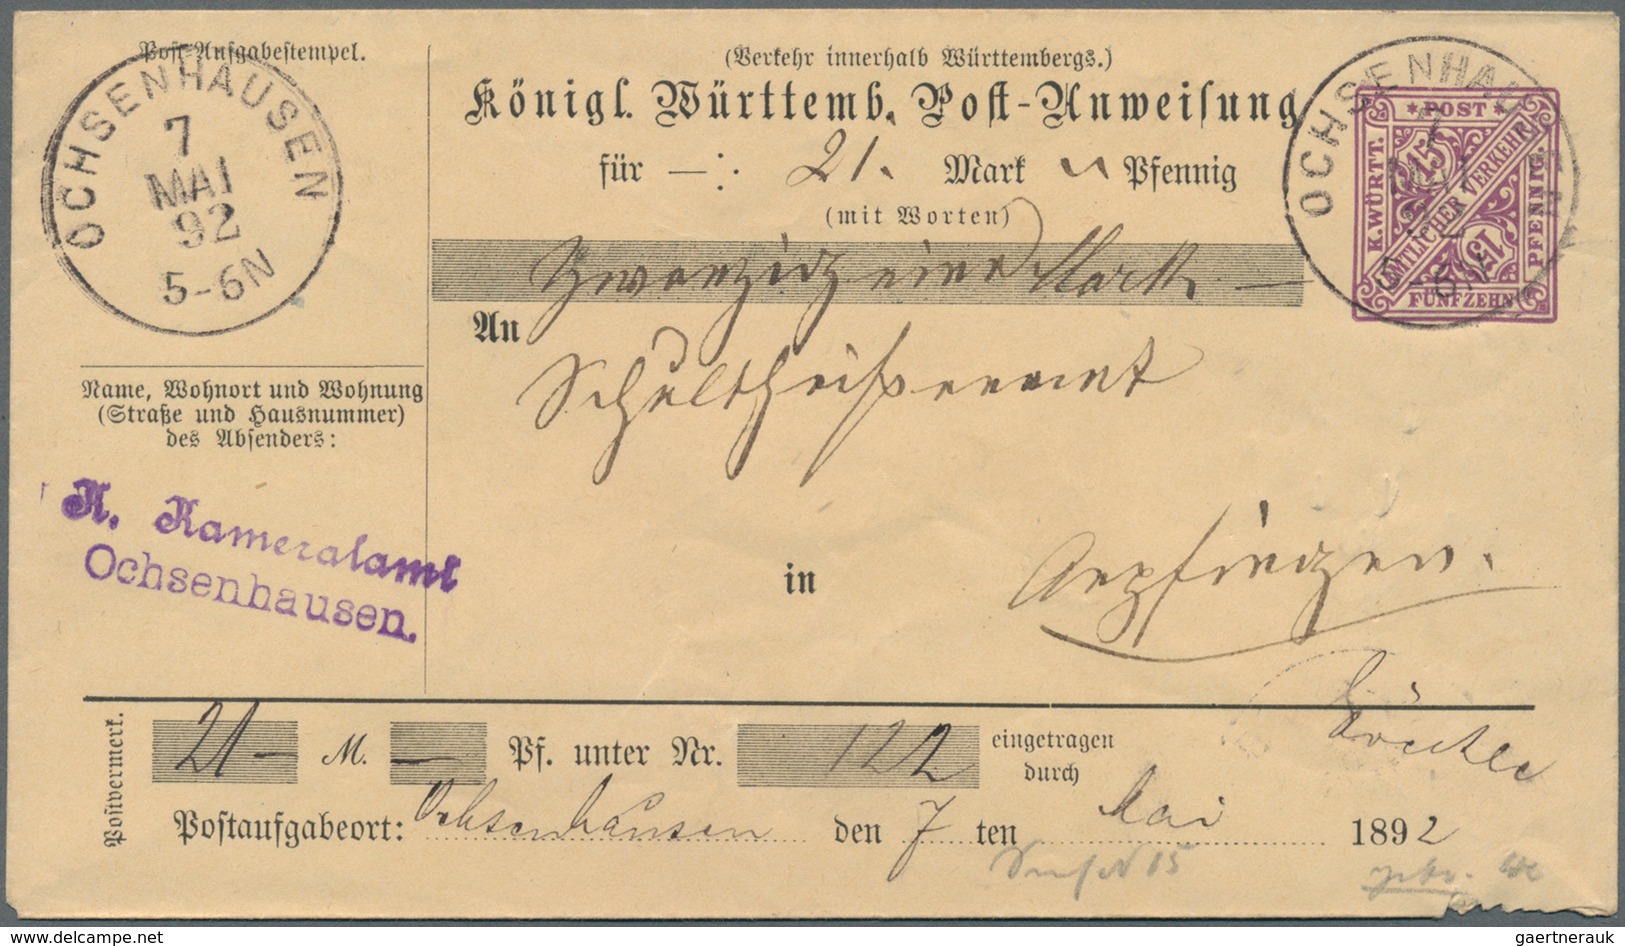 Post-Aufgabestempel.
OCHSENHAUSEN
7
MAI
92
5-6N
(Verkehr innerhalb Württembergs.)
Königl. Württemb. Post-Anweisung
für —: 21. Mark Pfennig
(mit Worten)
Zwanzig eine Mark —
An
Schultheißenamt
in
OCHSENHAUSEN
7
MAI
92
5-6N
* POST *
K. WÜRTT.
15
AMTLICHER VERKEHR
15
PFENNIG.
FÜNFZEHN
Name, Wohnort und Wohnung
(Straße und Hausnummer)
des Absenders:
K. Kameralamt
Ochsenhausen.
Postvermerk.
21 — M. — Pf. unter Nr. 122 eingetragen
durch
Postaufgabeort: Ochsenhausen den 7 ten Mai 1892
gaertnerauk